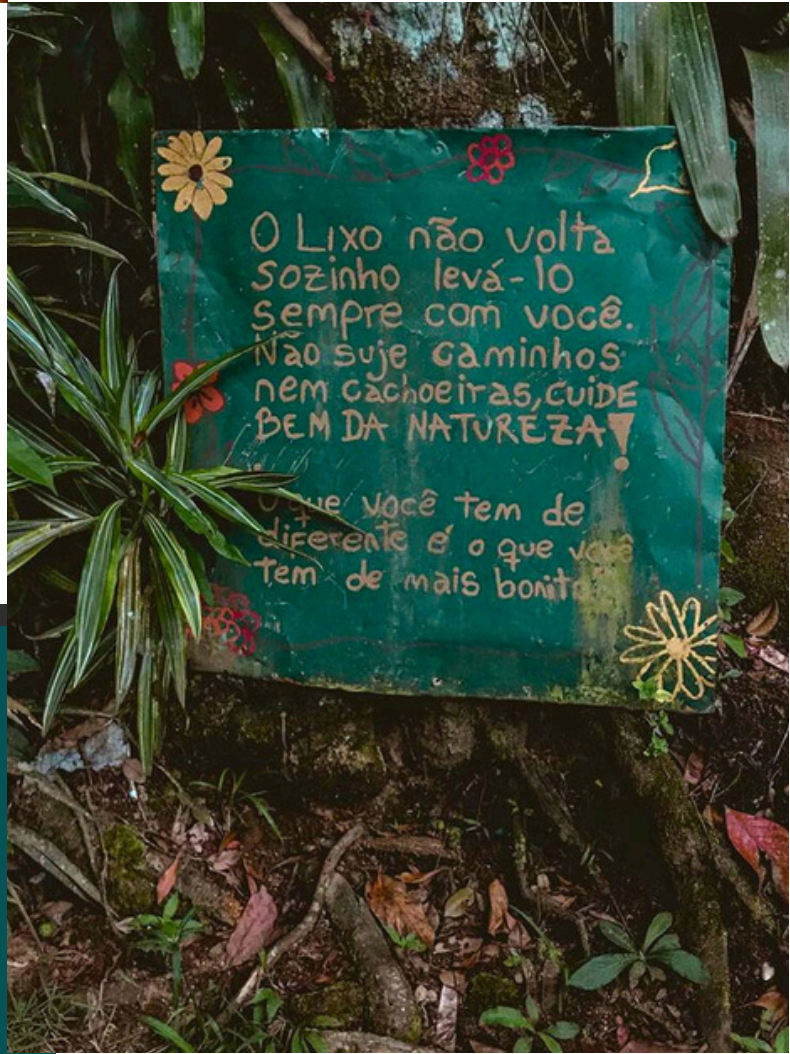 O Lixo não volta
sozinho levá-lo
sempre com você.
Não suje caminhos
nem cachoeiras, CUIDE
BEM DA NATUREZA!
O que você tem de
diferente é o que você
tem de mais bonito